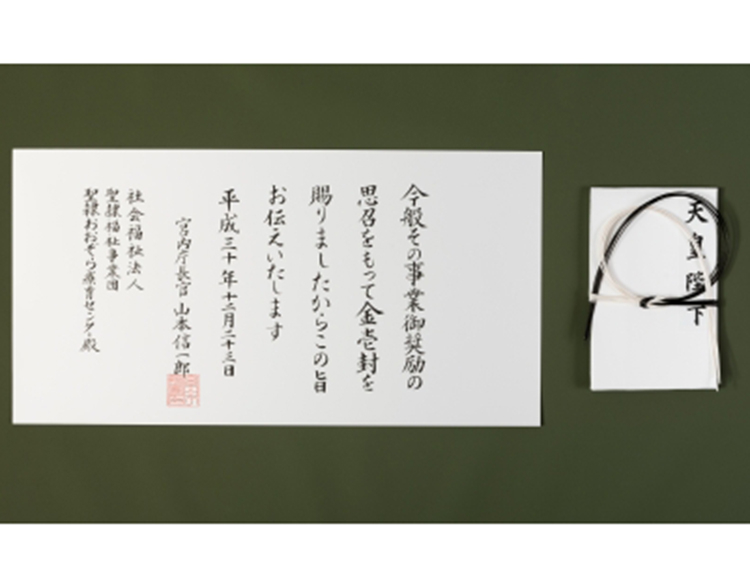 今般その事業御奨励の
思召をもって金壱封を
賜りましたからこの旨
お伝えいたします
平成三十年十二月二十三日
宮内庁長官 山本信一郎
社会福祉法人
聖隷福祉事業団
聖隷おおぞら療育センター殿
天皇陛下